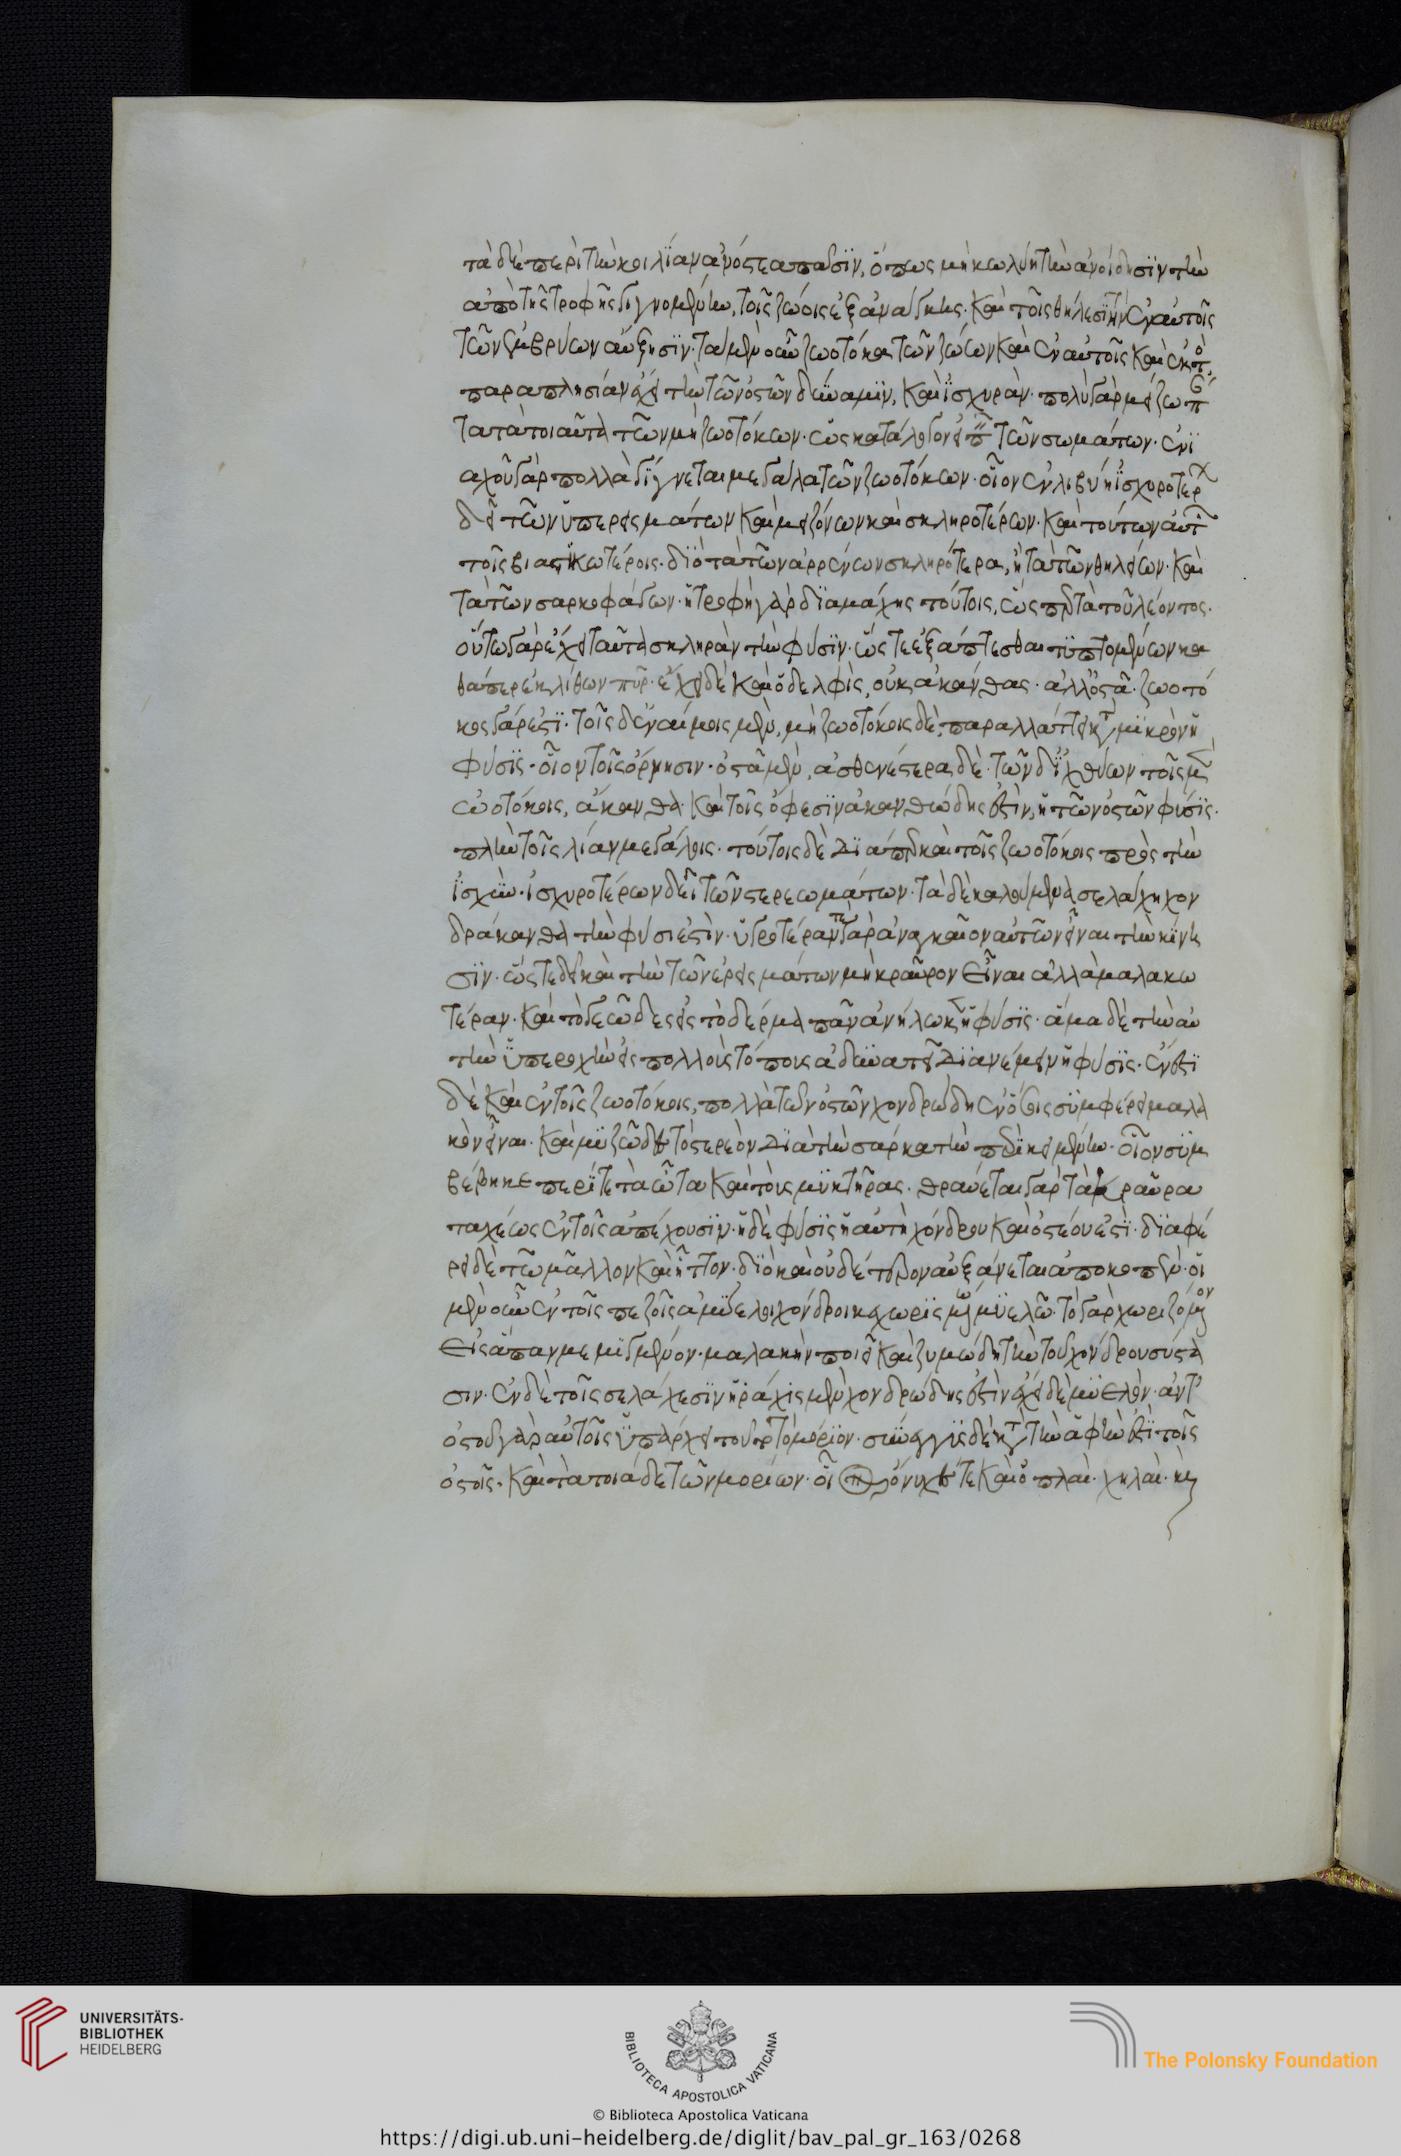 τὰ δὲ περὶ τὴν κοιλίαν ἀνόστεα πᾶσϊν, ὅπως μὴ κωλύη τὴν ἀνοίδησϊν τὴν
ἀπὸ τῆς τροφῆς γιγνομένην, τοῖς ζώοις ἐξ ἀνάγκης. καὶ τοῖς θήλεσϊ τὴν ἐν αὐτοῖς
τῶν ἐμβρύων αὔξησϊν. τὰ μὲν οὖν ζωοτόκα τῶν ζώων καὶ ἐν αὐτοῖς καὶ ἐκτὸ
παραπλησίαν ἔχει τὴν τῶν ὀστῶν δύναμϊν, καὶ ἰσχυράν. πολὺ γὰρ μείζω π
τα τὰ τοιαῦτα τῶν μὴ ζωοτόκων. ὡς κατὰ λόγον εἰπ τῶν σωμάτων. ἐνϊ
αχοῦ γὰρ πολλὰ γίγνεται μεγάλα τῶν ζωοτόκων. οἷον ἐν λιβύη ἰσχυροτέρ
δεῖ τῶν ὑπερεισμάτων καὶ μειζόνων καὶ σκληροτέρων. καὶ τούτων αὐτ
τοῖς βιαστϊκωτέροις. διὸ τὰ τῶν ἀρρένων σκληρότερα, ἢ τὰ τῶν θηλειῶν. καὶ
τὰ τῶν σαρκοφάγων. ἡ τροφὴ γὰρ διὰ μάχης τούτοις, ὥσπερ τὰ τοῦ λέοντος.
οὕτω γὰρ ἔχει ταῦτα σκληρὰν τὴν φύσϊν. ὥστε ἐξάπτεσθαι τϋπτομένων κα
θάπερ ἐκ λίθων πῦρ. ἔχει δὲ καὶ ὁ δελφὶς, οὐκ ἀκάνθας. ἀλλ' ὀστᾶ. ζωοτό
κος γάρ ἐστϊ. τοῖς δ' ἐναίμοις μὲν, μὴ ζωοτόκοις δὲ, παραλλάττει κατὰ μϊκρὸν ἡ
φύσϊς. οἷον τοῖς ὄρνησιν. ὀστᾶ μὲν, ἀσθενέστερα δὲ. τῶν δ' ἰχθύων τοῖς μὲν
ὠοτόκοις, ἄκανθα. καὶ τοῖς ὄφεσϊν ἀκανθώδης ἐστὶν, ἡ τῶν ὀστῶν φύσϊς.
πλὴν τοῖς λίαν μεγάλοις. τούτοις δὲ δϊ ἅπερ καὶ τοῖς ζωοτόκοις πρὸς τὴν
ἰσχὺν. ἰσχυροτέρων δεῖ τῶν στερεωμάτων. τὰ δὲ καλούμενα σελάχη χον
δράκανθα τὴν φύσϊ ἐστὶν. ὑγροτέραν τε γὰρ ἀναγκαῖον αὐτῶν εἶναι τὴν κίνη
σϊν. ὥστε δεῖ καὶ τὴν τῶν ἐρεισμάτων μὴ κραῦρον εἶναι ἀλλὰ μαλακω
τέραν. καὶ τὸ γεῶδες εἰς τὸ δέρμα πᾶν ἀνήλωκεν ἡ φύσϊς. ἅμα δὲ τὴν αὐ
τὴν ὑπεροχὴν εἰς πολλοὺς τόπους ἀδυνατεῖ δϊανέμειν ἡ φύσϊς. ἔνεστϊ
δὲ καὶ ἐν τοῖς ζωοτόκοις, πολλὰ τῶν ὀστῶν χονδρώδη ἐν ὅσοις συμφέρει μαλα
κὸν εἶναι. καὶ μυξῶδες τὸ στερεὸν δϊὰ τὴν σάρκα τὴν περϊκειμένην. οἷον συμ
βέβηκε περί τε τὰ ὦτα καὶ τοὺς μυκτῆρας. θραύεται γὰρ τὰ κραῦρα
ταχέως ἐν τοῖς ἀπέχουσϊν. ἡ δὲ φύσϊς ἡ αὐτὴ χόνδρου καὶ ὀστέου ἐστὶ. διαφέ
ρει δὲ τῶ μᾶλλον καὶ ἧττον. διὸ καὶ οὐδέτερον αὐξάνεται ἀποκοπὲν. οἱ
μὲν οὖν ἐν τοῖς πεζοῖς ἀμύελοι χόνδροι καὶ χωρϊς μένω μυελῶ. τὸ γὰρ χωριζόμενον
εἰς ἅπαν μεμϊγμένον. μαλακὴν ποιεῖ καὶ ζυμώδη τὴν τοῦ χόνδρου σύστα
σιν. ἐν δὲ τοῖς σελάχεσϊν ἡ ράχϊς μὲν χονδρώδης ἐστὶν ἔχει δὲ μυελὸν. ἀντ'
ὀστοῦ γὰρ αὐτοῖς ὑπάρχει τοῦτο τὸ μόριον. σύνεγγϋς δὲ κατὰ τὴν ἁφὴν ἐστϊ τοῖς
ὀστοῖς. καὶ τὰ τοιάδε τῶν μορίων. οἷον ὄνυχές τε καὶ ὁπλαὶ. χηλαὶ. καὶ
UNIVERSITÄTS-
BIBLIOTHEK
HEIDELBERG
BIBLIOTECA APOSTOLICA VATICANA
The Polonsky Foundation
© Biblioteca Apostolica Vaticana
https://digi.ub.uni-heidelberg.de/diglit/bav_pal_gr_163/0268